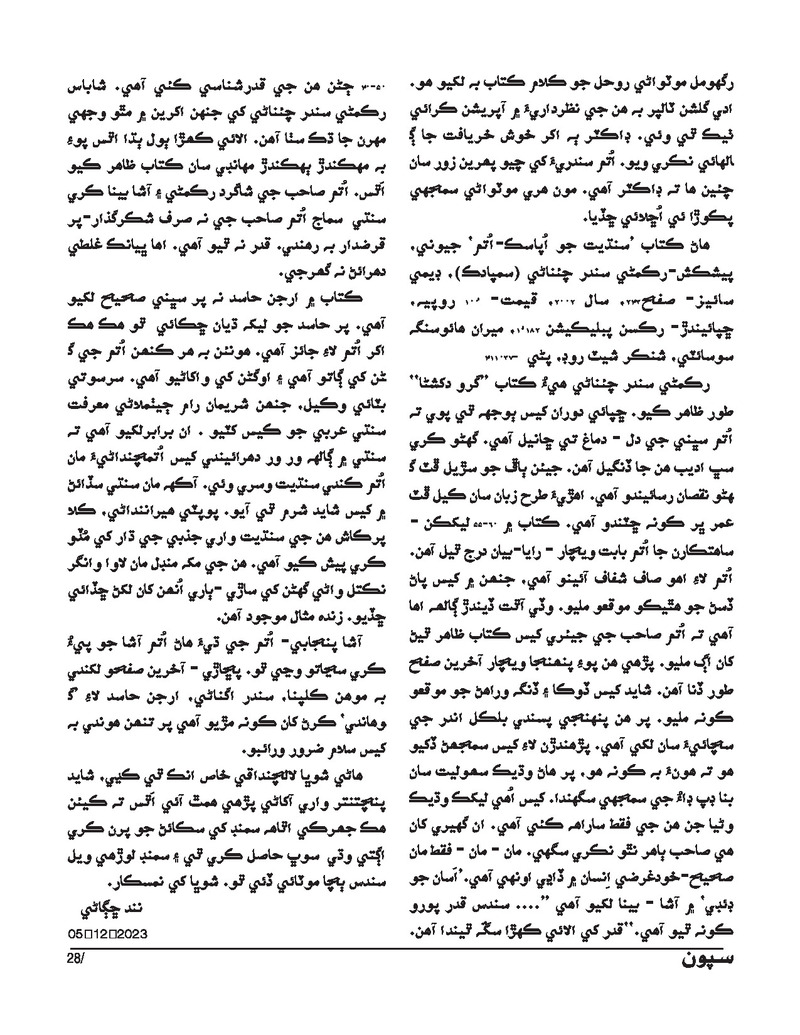 رگھومل موٽواڻي روحل جو ڪلام ڪتاب بہ لکيو هو.
ادي گلشن ٽالپر بہ هن جي نظرداريءَ ۾ آپريشن ڪرائي
ٺيڪ ٿي وئي. ڊاڪٽر ٻہ اکر خوش خريافت جا ڳ
الهائي نڪري ويو. اُتم سندريءَ کي چيو پهرين زور سان
چئين ها تہ ڊاڪٽر آهي. مون هري موٽواڻي سمجهي
پڪوڙا ئي اُڇلائي ڇڏيا.
هاڻ ڪتاب ’سنڌيت جو اُپاسڪ-اُتم‘ جيوني،
پيشڪش-رڪمڻي سندر چئناڻي (سمپادڪ)، ڊيمي
سائيز- صفح ۲۳۲، سال ۲۰۰۲، قيمت- ۱۰۵ روپيہ،
ڇپائيندڙ- رڪسن پبليڪيشن ۱۵۱۸۲، ميران هائوسنگہ
سوسائٽي، شنڪر شيٽ روڊ، پڻي ۴۱۱۰۲۷۳
رڪمڻي سندر چئناڻي هيءُ ڪتاب ”گرو دکشڻا“
طور ظاهر ڪيو. ڇپائي دوران کيس ٻوجهہ ٿي پوي تہ
اُتم سڀني جي دل - دماغ تي ڇانيل آهي. گهڻو ڪري
سڀ اديب هن جا ڏنگيل آهن. جيئن ٻاڦ جو سڙيل ڦٽ گ
هڻو نقصان رسائيندو آهي. اهڙيءَ طرح زبان سان ڪيل ڦٽ
عمر ڀر ڪونہ ڇٽندو آهي. ڪتاب ۾ ۶۰-۵۵ ليکڪن -
ساهتڪارن جا اُتم بابت ويچار - رايا-بيان درج ٿيل آهن.
اُتم لاءِ اهو صاف شفاف آئينو آهي، جنهن ۾ کيس پاڻ
ڏسڻ جو هٿيڪو موقعو مليو. وڏي آٿت ڏيندڙ ڳالهہ اها
آهي تہ اُتم صاحب جي جيئري کيس ڪتاب ظاهر ٿيڻ
کان اڳ مليو. پڙهي هن پوءِ پنهنجا ويچار آخرين صفح
طور ڏنا آهن. شايد کيس ٽوڪا ۽ ڏنگہ وراهڻ جو موقعو
ڪونہ مليو. پر هن پنهنجي پسندي بلڪل اندر جي
سچائيءَ سان لکي آهي. پڙهندڙن لاءِ کيس سمجهڻ ڏکيو
هو تہ هونءَ بہ ڪونہ هو، پر هاڻ وڌيڪ سهوليت سان
بنا ڊپ داءُ جي سمجهي سگهندا. کيس اُهي ليکڪ وڌيڪ
وڻيا جن هن جي فقط ساراهہ ڪئي آهي. ان گهيري کان
هي صاحب ٻاهر نٿو نڪري سگهي. مان - مان - فقط مان
صحيح-خودغرضي اِنسان ۾ ڏاڍي اونهي آهي.’اَسان جو
ڊئڊي‘ ۾ آشا - بينا لکيو آهي ”.... سندس قدر پورو
ڪونہ ٿيو آهي.“قدر کي الائي ڪهڙا سڱہ ٿيندا آهن.
۵۰-۳۰ ڄڻن هن جي قدرشناسي ڪئي آهي. شاباس
رڪمڻي سندر چئناڻي کي جنهن اکرين ۾ مٿو وجهي
مهرن جا ڌڪ سٺا آهن. الائي ڪهڙا ٻول ٻڌا اٿس پوءِ
بہ مهڪندڙ ٻهڪندڙ مهانڊي سان ڪتاب ظاهر ڪيو
اٿس. اُتم صاحب جي شاگرد رڪمڻي ۽ آشا بينا ڪري
سنڌي سماج اُتم صاحب جي نہ صرف شڪرگذار-پر
قرضدار بہ رهندي. قدر نہ ٿيو آهي. اها ڀيانڪ غلطي
دهرائڻ نہ گهرجي.
ڪتاب ۾ ارجن حاسد نہ پر سڀني صحيح لکيو
آهي. پر حاسد جو ليک ڌيان ڇڪائي ٿو هڪ هڪ
اکر اُتم لاءِ جائز آهي. هونئن بہ هر ڪنهن اُتم جي گ
ڻن کي ڳاتو آهي ۽ اوگڻن کي واکاڻيو آهي. سرسوتي
بٽائي وڪيل، جنهن شريمان رام جيٺملاڻي معرفت
سنڌي عربي جو ڪيس کٽيو . ان برابرلکيو آهي تہ
سنڌي ۾ ڳالهہ ور ور دهرائيندي کيس اُتمچنداڻيءَ مان
اُتم ڪندي سنڌيت وسري وئي. آکہ مان سنڌي سڏائڻ
۾ کيس شايد شرم ٿي آيو. پوپٽي هيراننداڻي، ڪلا
پرڪاش هن جي سنڌيت واري جذبي جي ڌار کي مُڏو
ڪري پيش ڪيو آهي. هن جي مک منڊل مان لاوا وانگر
نڪتل واڻي گهڻن کي ساڙي -ٻاري اُنهن کان لکڻ ڇڏائي
ڇڏيو. زندہ مثال موجود آهن.
آشا پنجابي- اُتم جي ڌيءَ هاڻ اُتم آشا جو پيءُ
ڪري سڃاتو وڃي ٿو. پڇاڙي - آخرين صفحو لکندي
بہ موهن ڪلپنا، سندر اگناڻي، ارجن حاسد لاءِ ’گ
وهاندي‘ ڪرڻ کان ڪونہ مڙيو آهي پر تنهن هوندي بہ
کيس سلام ضرور ورائبو.
هاڻي شوڀا لالچنداڻي خاص انڪ ٿي ڪڍي، شايد
پنچتنتر واري آکاڻي پڙهي همٿ آئي اٿس تہ ڪيئن
هڪ جهرڪي اٿاهہ سمنڊ کي سڪائڻ جو پرڻ ڪري
اڳتي وڌي سوڀ حاصل ڪري ٿي ۽ سمنڊ لوڙهي ويل
سندس ٻچا موٽائي ڏئي ٿو. شوڀا کي نمسڪار.
نند ڇڳاڻي
05□12□2023
28/
سپون